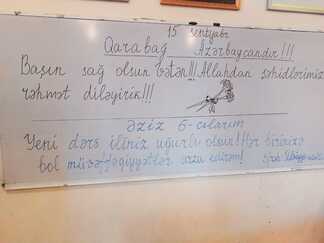 15 sentyabr
Qarabağ Azərbaycandır!!!
Başın sağ olsun Vətən!!! Allahdan şəhidlərimizə
rəhmət diləyirik!!!
Əziz 6-cılarım
Yeni dərs iliniz uğurlu olsun! Hər birinizə
bol müvəffəqiyyətlər arzu edirəm!